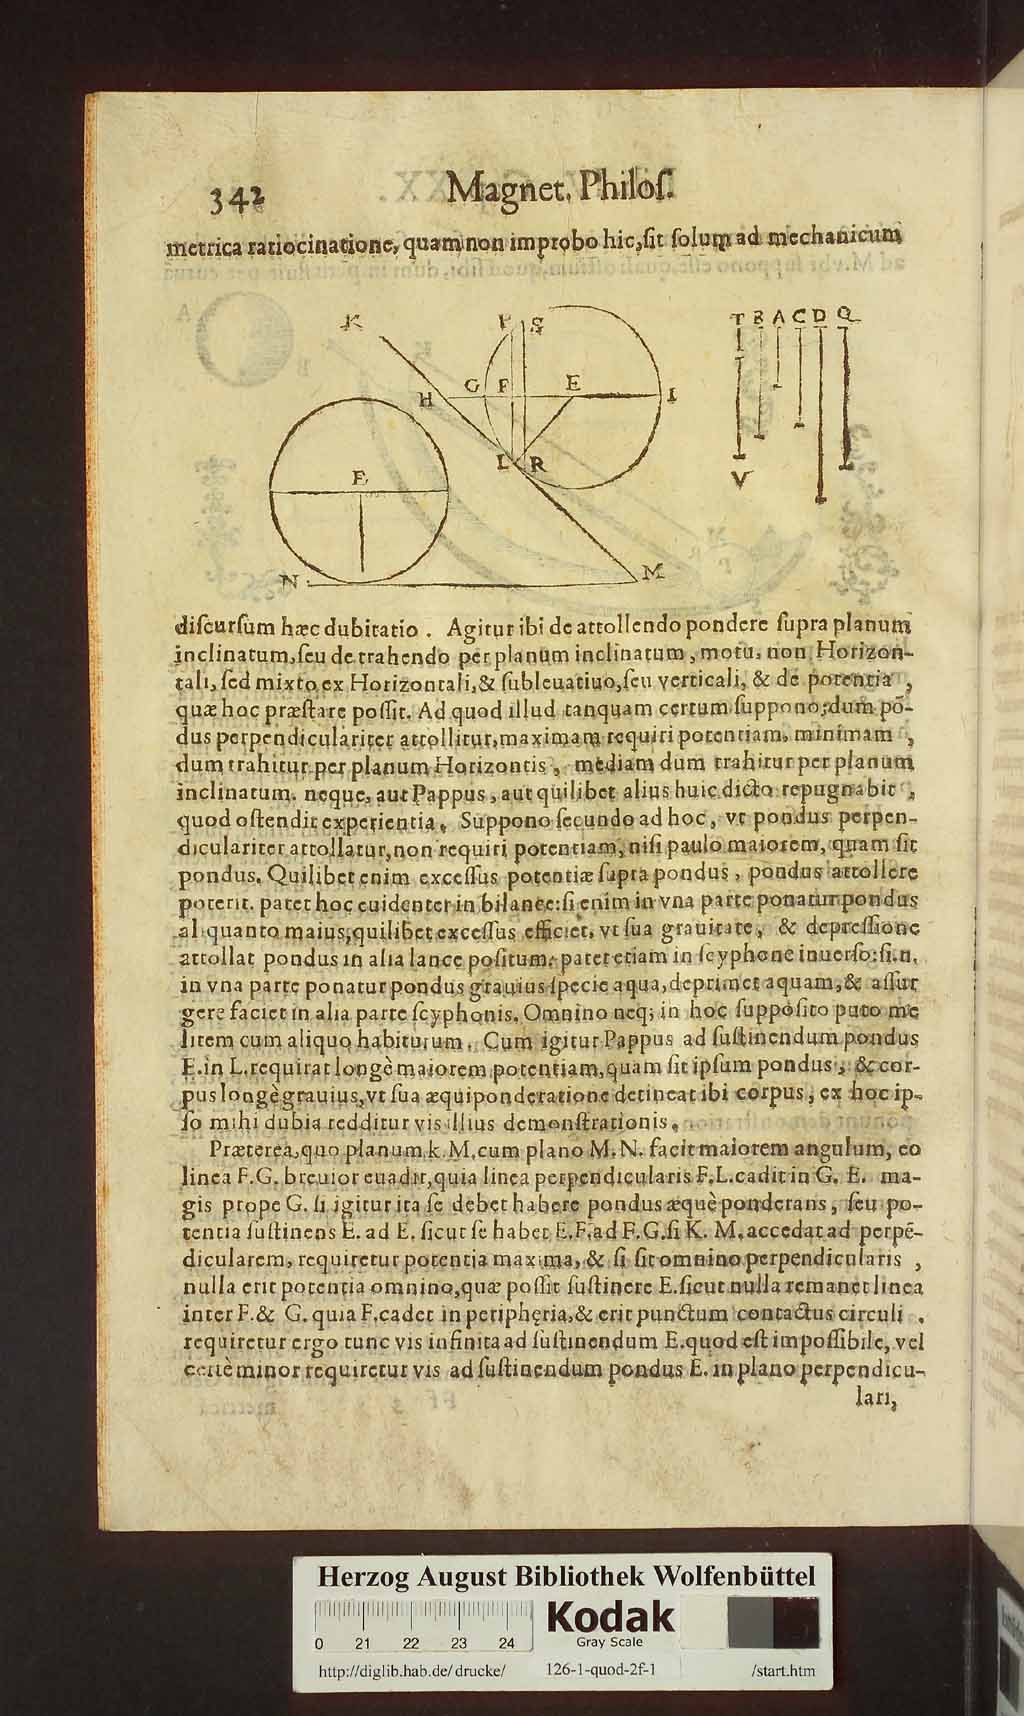 342 Magnet. Philoſ.
metrica ratiocinatione, quam non improbo hic, ſit ſolum ad mechanicum
K P S T B A C D Q
H G F E I
L R
E V
N M
diſcurſum hæc dubitatio . Agitur ibi de attollendo pondere ſupra planum
inclinatum, ſeu de trahendo per planum inclinatum, motu, non Horizon-
tali, ſed mixto ex Horizontali, & ſubleuatiuo, ſeu verticali, & de potentia ,
quæ hoc præſtare poſſit. Ad quod illud tanquam certum ſuppono; dum pō-
dus perpendiculariter attollitur, maximam requiri potentiam, minimam ,
dum trahitur per planum Horizontis , mediam dum trahitur per planum
inclinatum. neque, aut Pappus, aut quilibet alius huic dicto repugnabit ,
quod oſtendit experientia. Suppono ſecundo ad hoc, vt pondus perpen-
diculariter attollatur, non requiri potentiam, niſi paulo maiorem, quam ſit
pondus. Quilibet enim exceſſus potentiæ ſupra pondus, pondus attollere
poterit. patet hoc euidenter in bilance: ſi enim in vna parte ponatur pondus
aliquanto maius, quilibet exceſſus efficiet, vt ſua grauitate, & depreſſione
attollat pondus in alia lance poſitum. patet etiam in ſcyphone inuerſo: ſi.n.
in vna parte ponatur pondus grauius ſpecie aqua, deprimet aquam, & aſſur
gere faciet in alia parte ſcyphonis. Omnino neq; in hoc ſuppoſito puto me
litem cum aliquo habiturum. Cum igitur Pappus ad ſuſtinendum pondus
E. in L. requirat longè maiorem potentiam, quam ſit ipſum pondus, & cor-
pus longè grauius, vt ſua æquiponderatione detineat ibi corpus, ex hoc ip-
ſo mihi dubia redditur vis illius demonſtrationis.
Præterea, quo planum k. M. cum plano M. N. facit maiorem angulum, eo
linea F.G. breuior euadit, quia linea perpendicularis F.L. cadit in G. E. ma-
gis prope G. ſi igitur ita ſe debet habere pondus æquè ponderans, ſeu po-
tentia ſuſtinens E. ad E. ſicut ſe habet E.F. ad F.G. ſi K. M. accedat ad perpē-
dicularem, requiretur potentia maxima, & ſi ſit omnino perpendicularis ,
nulla erit potentia omnino, quæ poſſit ſuſtinere E. ſicut nulla remanet linea
inter F. & G. quia F. cadet in peripheria, & erit punctum contactus circuli .
requiretur ergo tunc vis infinita ad ſuſtinendum E. quod eſt impoſſibile, vel
certè minor requiretur vis ad ſuſtinendum pondus E. in plano perpendicu-
lari,
Herzog August Bibliothek Wolfenbüttel
0 21 22 23 24 Kodak
Gray Scale
http://diglib.hab.de/drucke/ 126-1-quod-2f-1 /start.htm